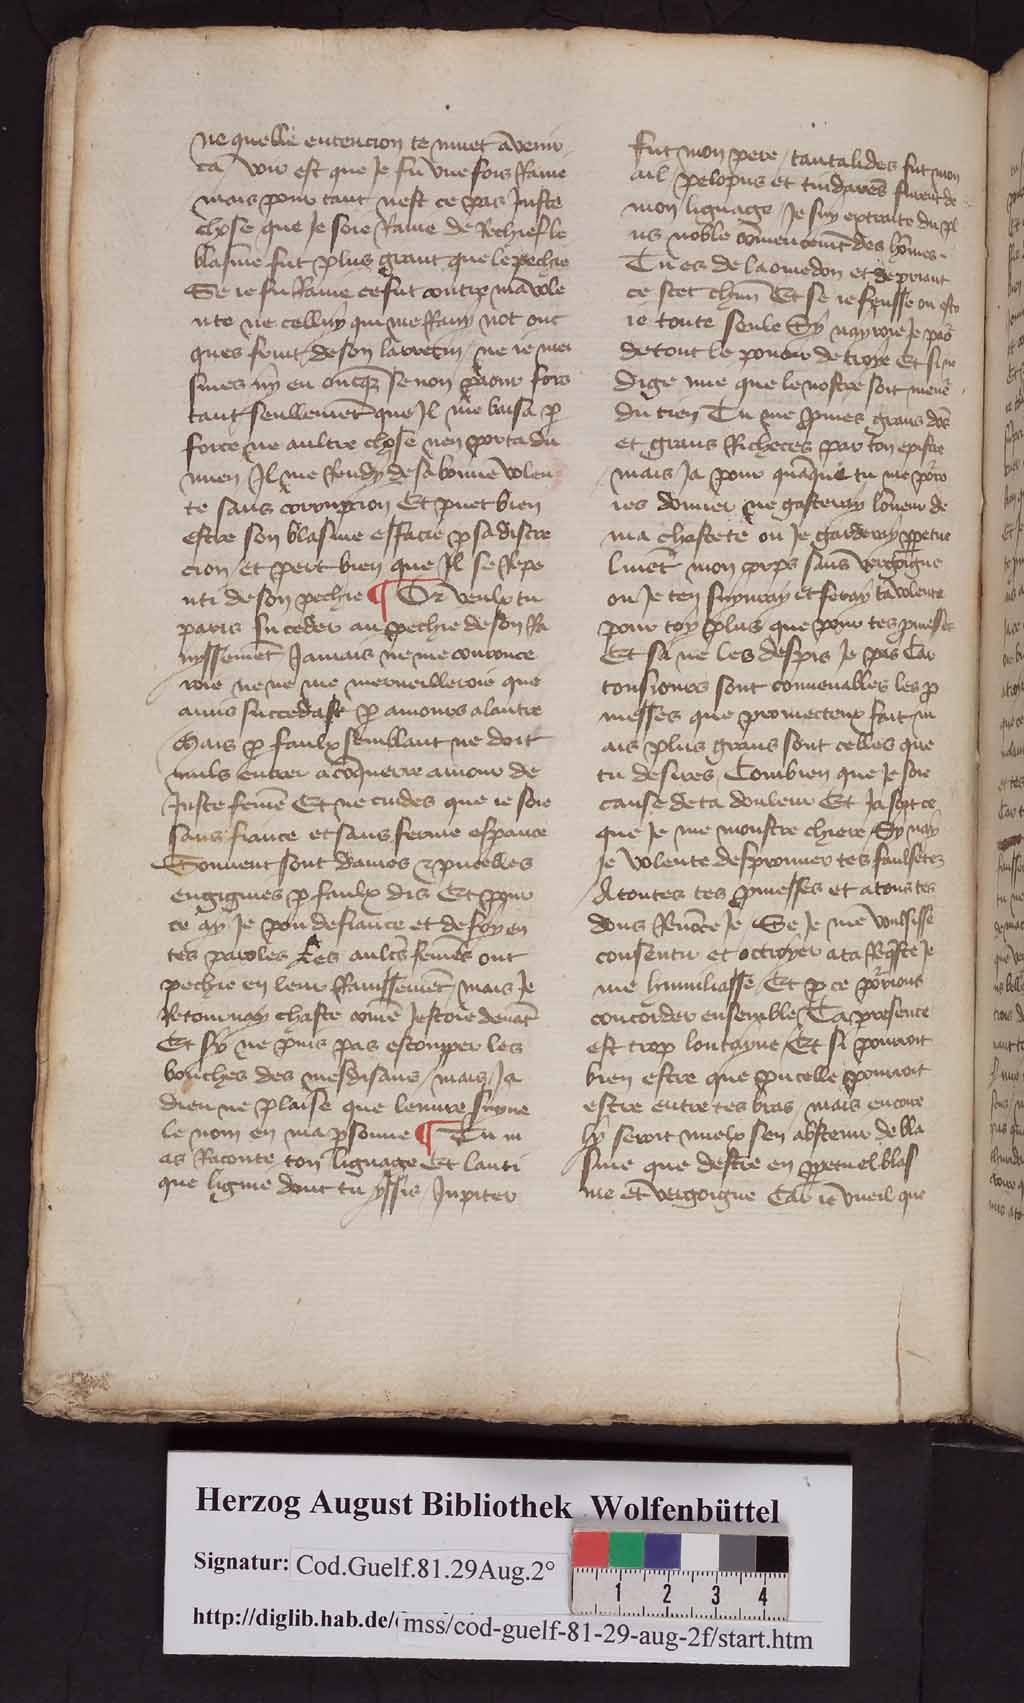 ne quelle entencion te muet a venir
ca / voir est que Je fu une fois Ravie
mais pour tant nest ce pas Juste
chose que Je soie Ravie de Rechief le
blasme fut plus grant que le pechie
Se ie fu Ravie ce fut contre ma vole
nte ne celluy qui me Ravy not onc
ques fruit de son larrecin / ne ie men
tant seullemēt que Il me baisa ꝑ
force ne aultre chose nen porta du
mien Il me Rendy de sa bonne volen
te sans corrupcion Et puet bien
estre son blasme effacie ꝑ sa discre
cion et pert bien que Il se Repe
nti de son pechie ¶ Or veulx tu
paris succeder au pechie de son Ra
vyssemēt Jamais ne me couronce
roie ne ne me merveilleroie que
auns succedast ꝑ amours a lautre
Mais ꝑ faulx semblant ne doit
nuls entrer a cōquerre amour de
Juste femē Et ne cuides que ie soie
sans fiance et sans ferme espance
Souvent sont dames et pucelles
engignies ꝑ faulx dis Et pour
ce ay Je pou de fiance et de foy en
tes paroles Les aultrs femēs ont
pechie en leur Ravissemēt / mais Je
Retournay chaste comē Jestoie devāt
Et sy ne puis pas estouper les
bouches des mesdisans / mais Ja
dieu ne plaise que lenvre suyve
le nom en ma ꝑsonne ¶ Tu m
as Raconte ton lignage Et lanti
que ligne dont tu yssis / Jupiter
fut mon pere / tantalides fut mon
ail / pelopus et tindareus furent de
mon lignage Je suy extraite du pl
us noble cōmencemēt des hōmes.
Tu es de laomedon et de priant
ce scet chūn Et se ie feusse ou
ie toute seule Sy
de tout le povoir de troye Et
dige mie que le nostre soit
du tien Tu me ꝓmes grans
et grans Richeces par ton epistre
mais Ja pour quāque tu me pōro
ies donner ne gasteray loneur de
ma chastete ou Je garderay ꝑpetue
lmēt mon corps sans vergoigne
ou Je ten suyvray et feray ta volente
pour toy plus que pour tes ꝓmesses
Et sa ne les despis Je pas Car
tousiours sont convenables les ꝓ
messes que prometteur fait m
ais plus grans sont celles que
tu desires, Combien que Je soie
cause de ta douleur Et Ja soit ce
que Je me monstre chiere Sy nay
Je volente desprouver tes faulsetez
A toutes tes ꝓmesses et a tous tes
dons Renōce Je Se Je me voulsisse
consentir et octroyer a ta Req̄ste Je
me humiliasse / Et ꝑ ce pōrions
concorder ensemble Ta presence
est trop lontayne / Et si pourroit
bien estre que pucelle pourroit
estre entre tes bras / mais encore
ly seroit mielx sen abstenir de bla
sme que destre en ꝑpetuel blas
me et vergoigne Car ie vueil que
Herzog August Bibliothek Wolfenbüttel
Signatur: Cod.Guelf.81.29Aug.2°
1 2 3 4
http://diglib.hab.de/ mss/cod-guelf-81-29-aug-2f/start.htm